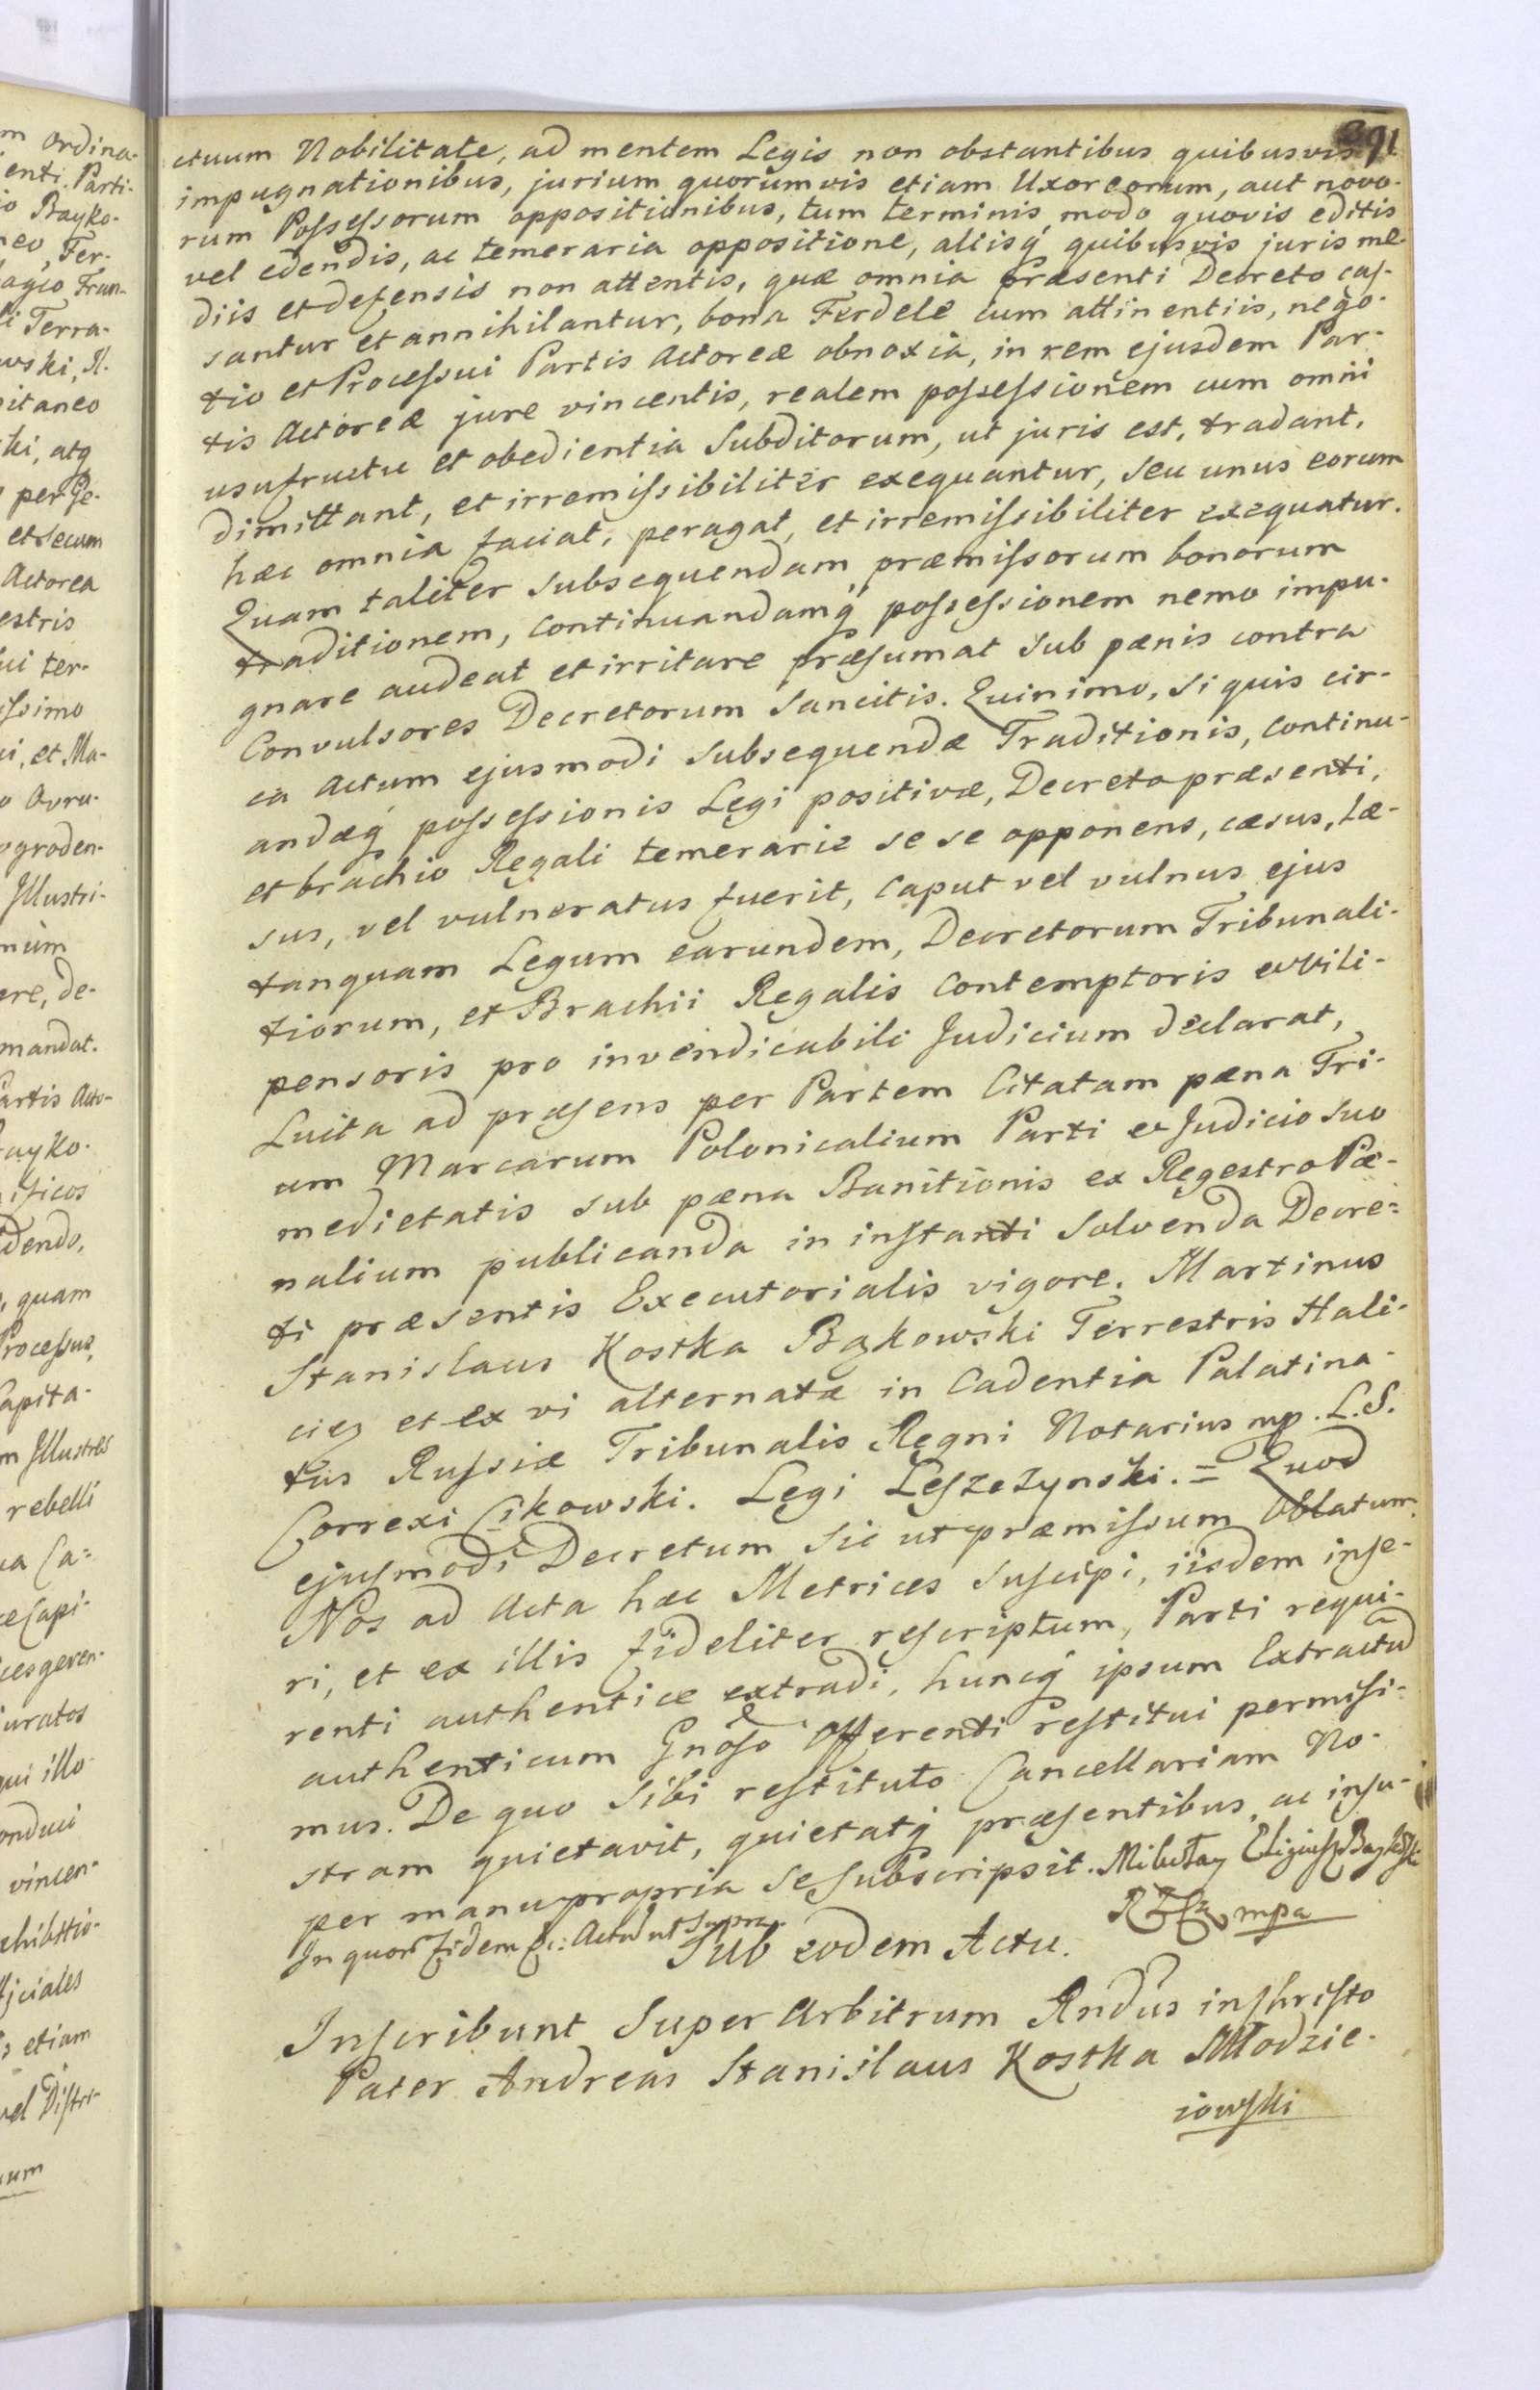 391
ctuum Nobilitate, ad mentem Legis non obstantibus quibusvis
impugnationibus, jurium quorumvis etiam Uxoreorum, aut novo-
rum Possessorum oppositionibus, tum terminis modo quovis editis
vel edendis, ac temeraria oppositione, aliisq́ quibusvis juris me-
diis et defensis non attentis, quæ omnia præsenti Decreto cas-
santur et annihilantur, bona Ferdele cum attinentiis, nego-
tio et Processui Partis Actoreæ obnoxia, in rem ejusdem Par-
tis Actoreæ jure vincentis, realem possessionem cum omni
usufructu et obedientia Subditorum, ut juris est, tradant,
dimittant, et irremissibiliter exequantur, seu unus eorum
hæc omnia faciat, peragat, et irremissibiliter exequatur.
Quam taliter subsequendam præmissorum bonorum
traditionem, continuandamq́ possessionem nemo impu-
gnare audeat et irritare præsumat sub pænis contra
Convulsores Decretorum sancitis. Quinimo, si quis cir-
ca actum ejusmodi subsequendæ Traditionis, continu-
andæq́ possessionis Legi positivæ, Decreto præsenti,
et brachio Regali temerarie se se opponens, cæsus, læ-
sus, vel vulneratus fuerit, caput vel vulnus ejus
tanquam Legum earundem, Decretorum Tribunali-
tiorum, et Brachii Regalis Contemptoris et Vili-
pensoris pro invendicabili Judicium declarat,
Luita ad præsens per Partem Citatam pæna Tri-
um Marcarum Polonicalium Parti et Judicio suo
medietatis sub pæna Banitionis ex Regestro Pæ-
nalium publicanda in instanti solvenda Decre-
ti præsentis Executorialis vigore. Martinus
Stanislaus Kostka Bąkowski Terrestris Hali-
cien et ex vi alternatæ in Cadentia Palatina-
tus Russiæ Tribunalis Regni Notarius mp. L.S.
Correxi Cikowski. Legi Leszczynski. = Quod
ejusmodi Decretum sic ut præmissum Oblatum
Nos ad Acta hæc Metrices suscipi, iisdem inse-
ri, et ex illis fideliter rescriptum, Parti requi-
renti authentice extradi, huncq́ ipsum Extractũ
authenticum Gnoso Offerenti restitui permisi-
mus. De quo sibi restituto Cancellariam No-
stram quietavit, quietatq́ præsentibus, ac insu-
per manu propria se subscripsit. Mikołay Eligiusz Baykowski
In quor fidem &c: Actũ ut supra. mpa
Sub eodem Actu.
Inscribunt Super Arbitrum Rndus in Christo
Pater Andreas Stanislaus Kostka Młodzie-
iowski